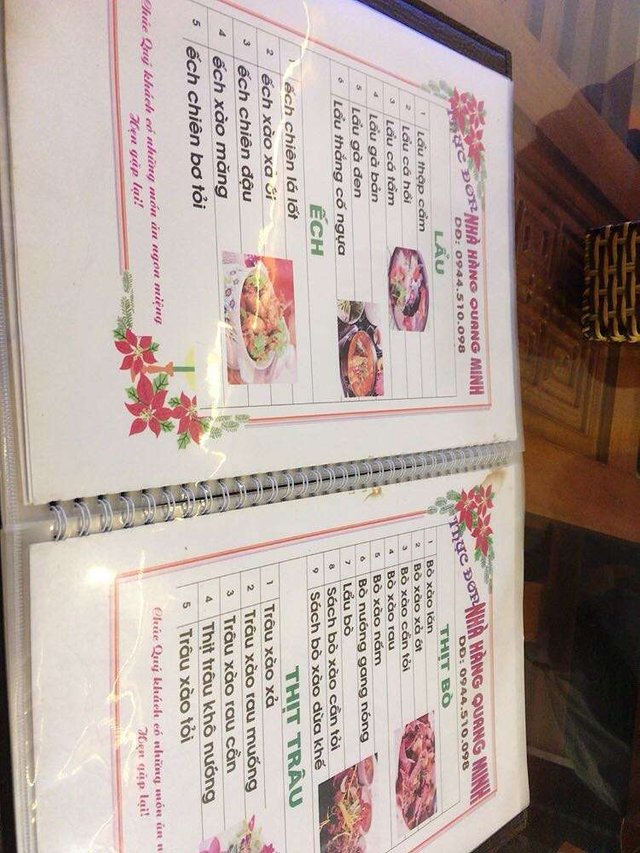 THỰC ĐƠN NHÀ HÀNG QUANG MINH
DĐ: 0944.510.098
LẨU
1 Lẩu thập cẩm
2 Lẩu cá hồi
3 Lẩu cá tầm
4 Lẩu gà bản
5 Lẩu gà đen
6 Lẩu thắng cố ngựa
ẾCH
1 ếch chiên lá lốt
2 ếch xào xả ớt
3 ếch chiên dậu
4 ếch xào măng
5 ếch chiên bơ tỏi
Chúc Quý khách có những món ăn ngon miệng
Hẹn gặp lại!
THỰC ĐƠN NHÀ HÀNG QUANG MINH
DĐ: 0944.510.098
THỊT BÒ
1 Bò xào lăn
2 Bò xào xả ớt
3 Bò xào cần tỏi
4 Bò xào rau
5 Bò xào nấm
6 Bò nướng gang nóng
7 Lẩu bò
8 Sách bò xào cần tỏi
9 Sách bò xào dừa khế
THỊT TRÂU
1 Trâu xào xả
2 Trâu xào rau muống
3 Trâu xào rau cần
4 Thịt trâu khô nướng
5 Trâu xào tỏi
Chúc Quý khách có những món ăn
Hẹn gặp lại!